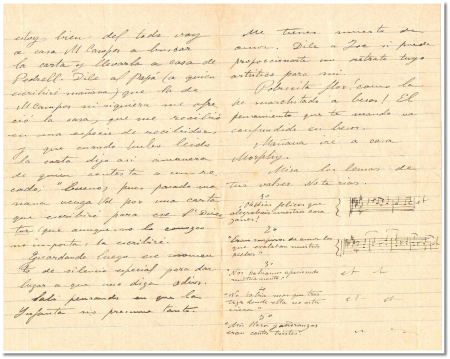 estoy bien del todo voy
a casa M. Campos a buscar
la carta y llevarla a casa de
Pedrell. Dile al Papá (a quien
escribiré mañana) que la de
M. Campos ni siquiera me ofre-
ció la casa, que me recibió
en una especie de recibidor
y que cuando hubo leido
la carta dijo asi a manera
de quien contesta a un re-
cado; "Bueno, pues pasado ma
ñana venga Vd por una carta
que escribiré para ese Sr Direc
tor (que aunque no le conozco
no importa, le escribiré.
Quedando luego un momen
to de silencio especial para dar
lugar a que uno diga adios.
Sale pensando en que la
Infanta no presume tanto.
Me tienes muerto de
amor. Dile a Joe si puede
proporcionarte un retrato tuyo
artístico para mi.
Pobrecita flor! como la
he marchitado a besos! El
pensamiento que te mando va
confundido en besos.
Mañana iré a casa
Morphy.
Mira los lemas de
tus valses. No te rias.
1º
felices que
alegraban nuestra
2º
"Eran suspiros de amor los
que exalaban nuestros
pechos"
3º
"Nos estabamos
mutuamente!
4º
"La
donde ella no esta
5º
"Asi
eran cantos tristes"